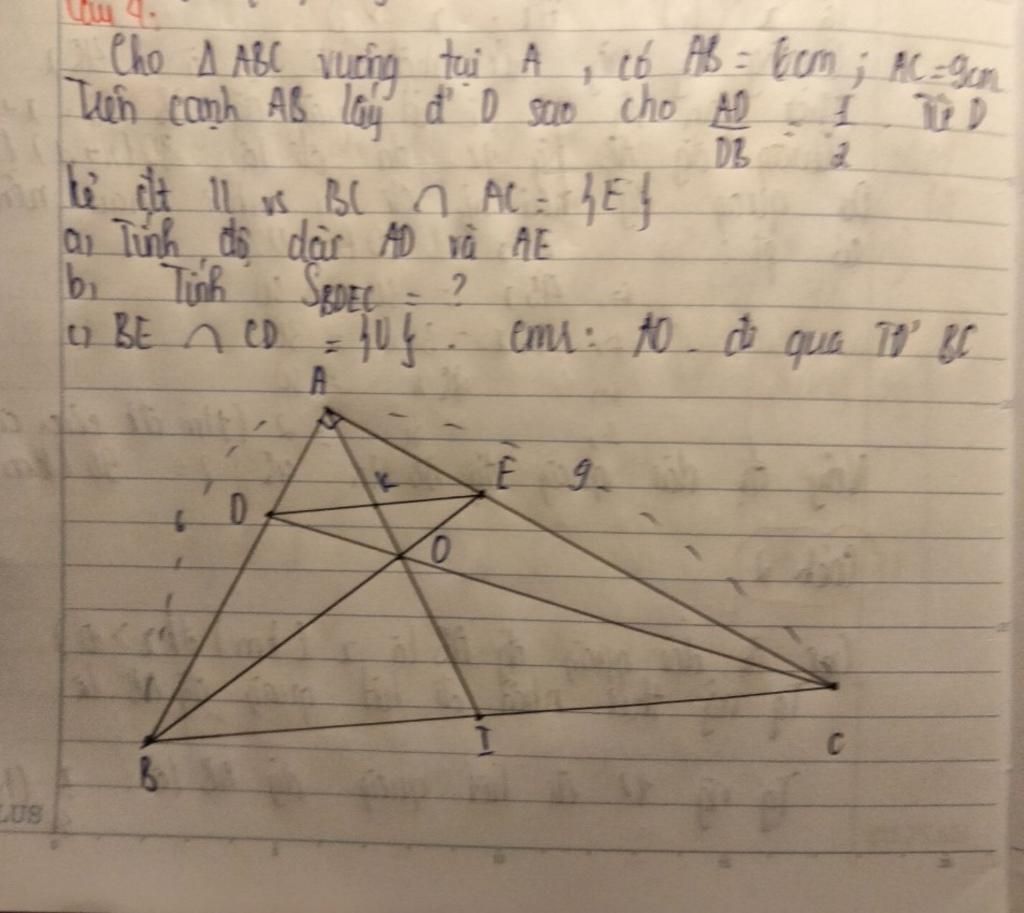 Câu 4:
Cho Δ ABC vuông tại A , có AB = 6cm ; AC = 9cm
Trên cạnh AB lấy đ' D sao cho AD/DB = 1/2 . Từ D
kẻ đt // vs BC ∩ AC = {E}
a, Tính độ dài AD và AE
b, Tính S_BDEC = ?
c) BE ∩ CD = {O} . cmr : AO đi qua TĐ' BC
A
K
E
9
6
D
O
I
C
B
LUS